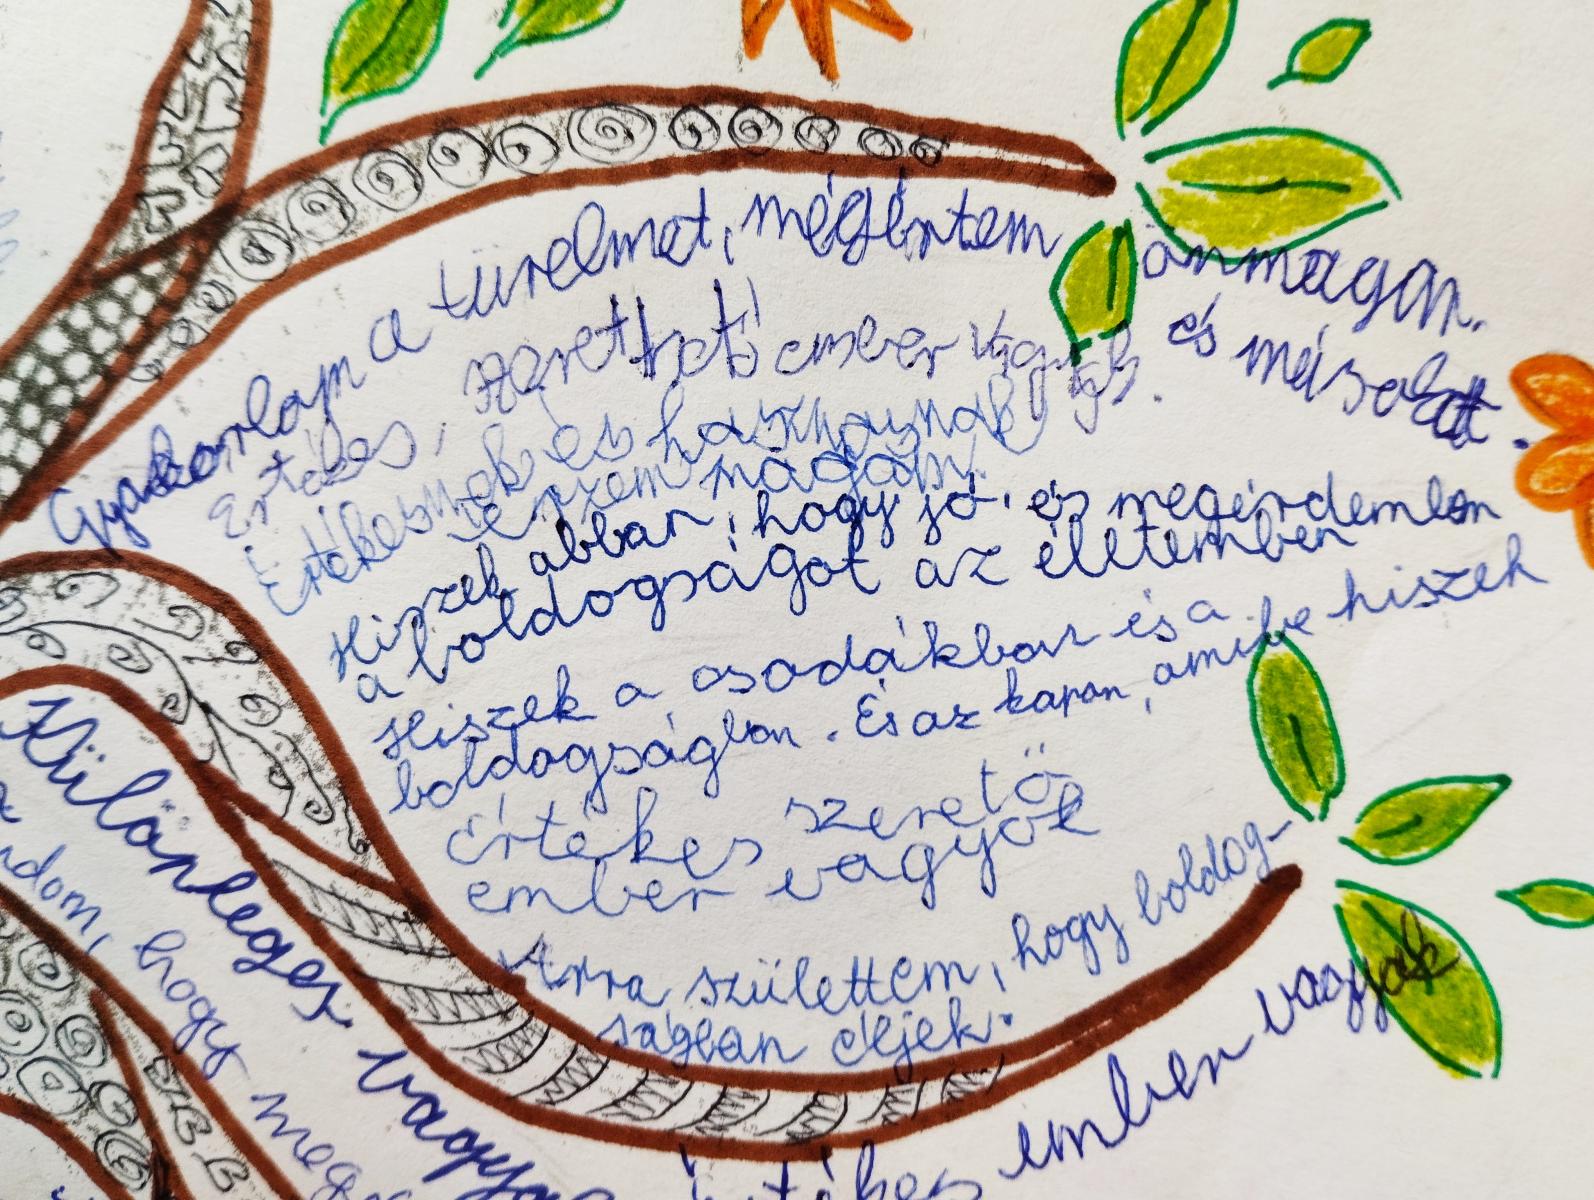 Gyakorlom a türelmet, megértem önmagam.
és másokat.
Értékes, szerethető ember vagyok.
Értékesnek és hasznosnak
érzem magam.
Hiszek abban, hogy jó, és megérdemlem
a boldogságot az életemben
Hiszek a csodákban és a
boldogságban. És az kapom, amibe hiszek
Értékes szerető
ember vagyok
Arra születtem, hogy boldog-
ságban éljek.
Különleges vagyo
hogy meg
értékes ember vagyok